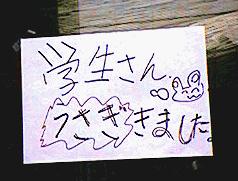 学生さん
うさぎきました。